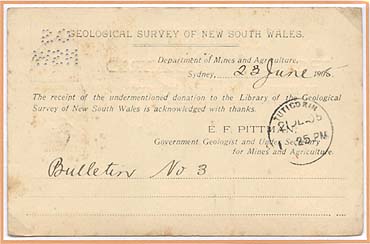 GEOLOGICAL SURVEY OF NEW SOUTH WALES.
Department of Mines and Agriculture,
Sydney, 23 June 1905.
The receipt of the undermentioned donation to the Library of the Geological
Survey of New South Wales is acknowledged with thanks.
E. F. PITTMAN,
TUTICORIN
21 JL 05
25 PM
Government Geologist and Under Secretary
for Mines and Agriculture.
Bulletin No 3